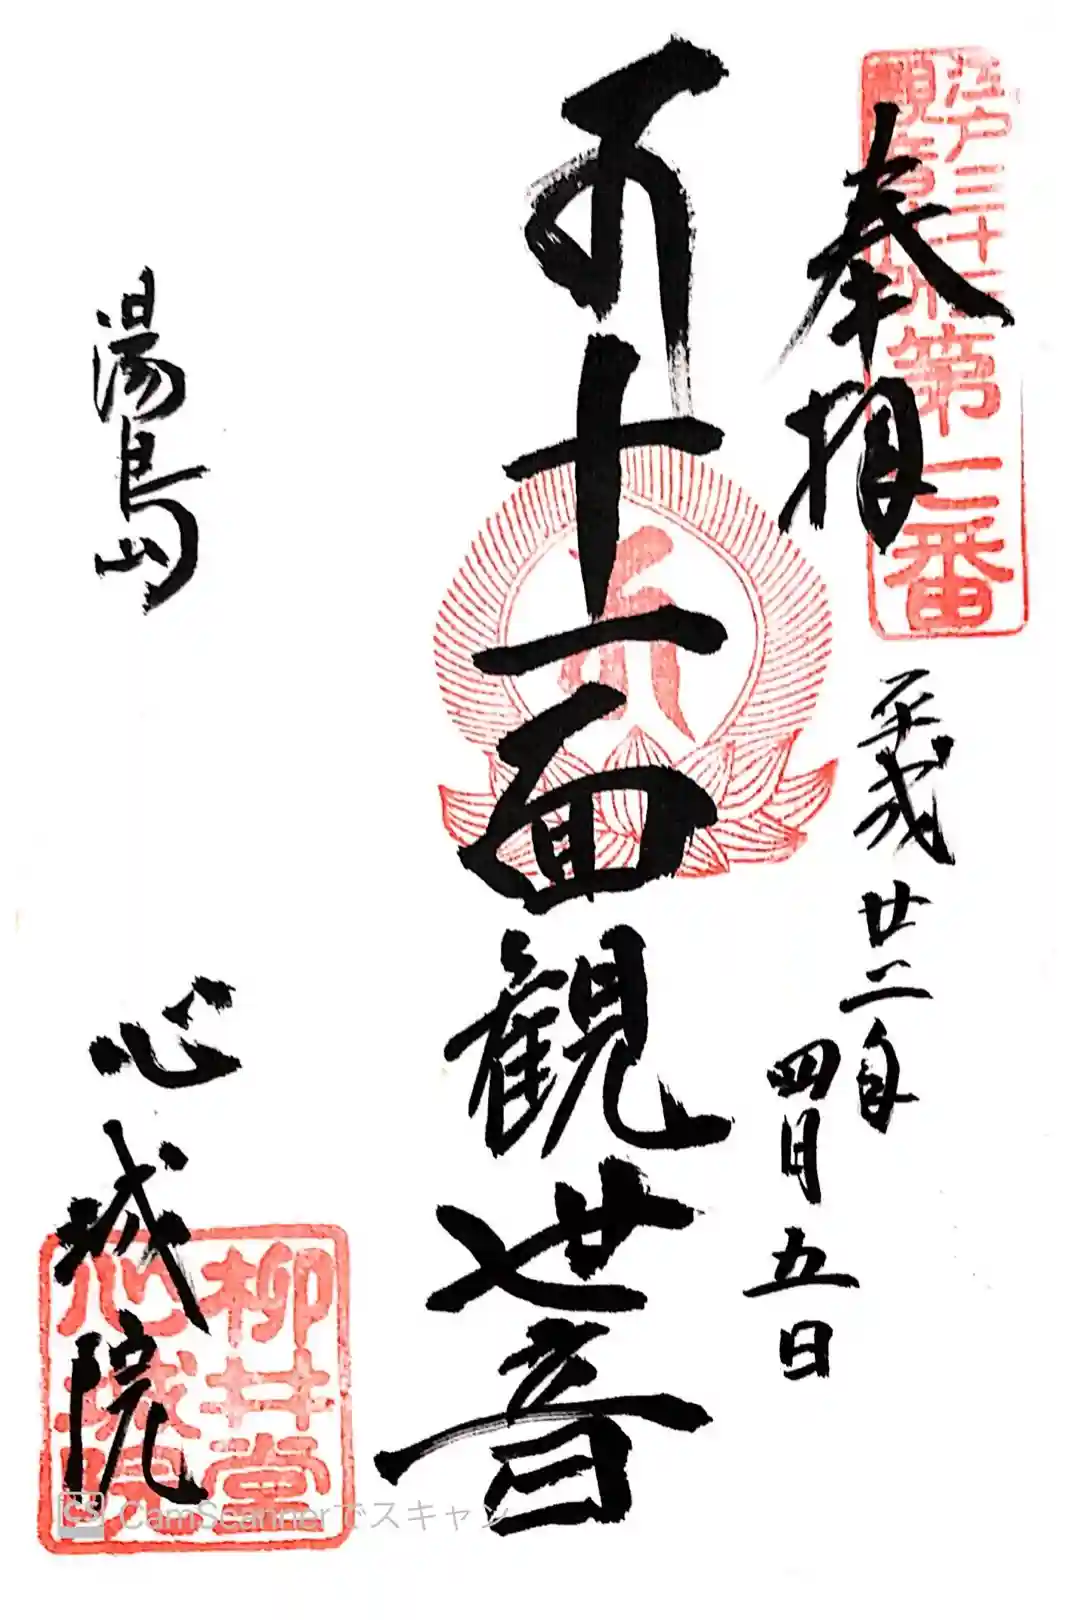 江戸三十三
観音札所第七番
奉拝
平成廿二年
四月五日
十一面観世音
湯島
心城院
柳井堂
心城院
CS CamScannerでスキャン